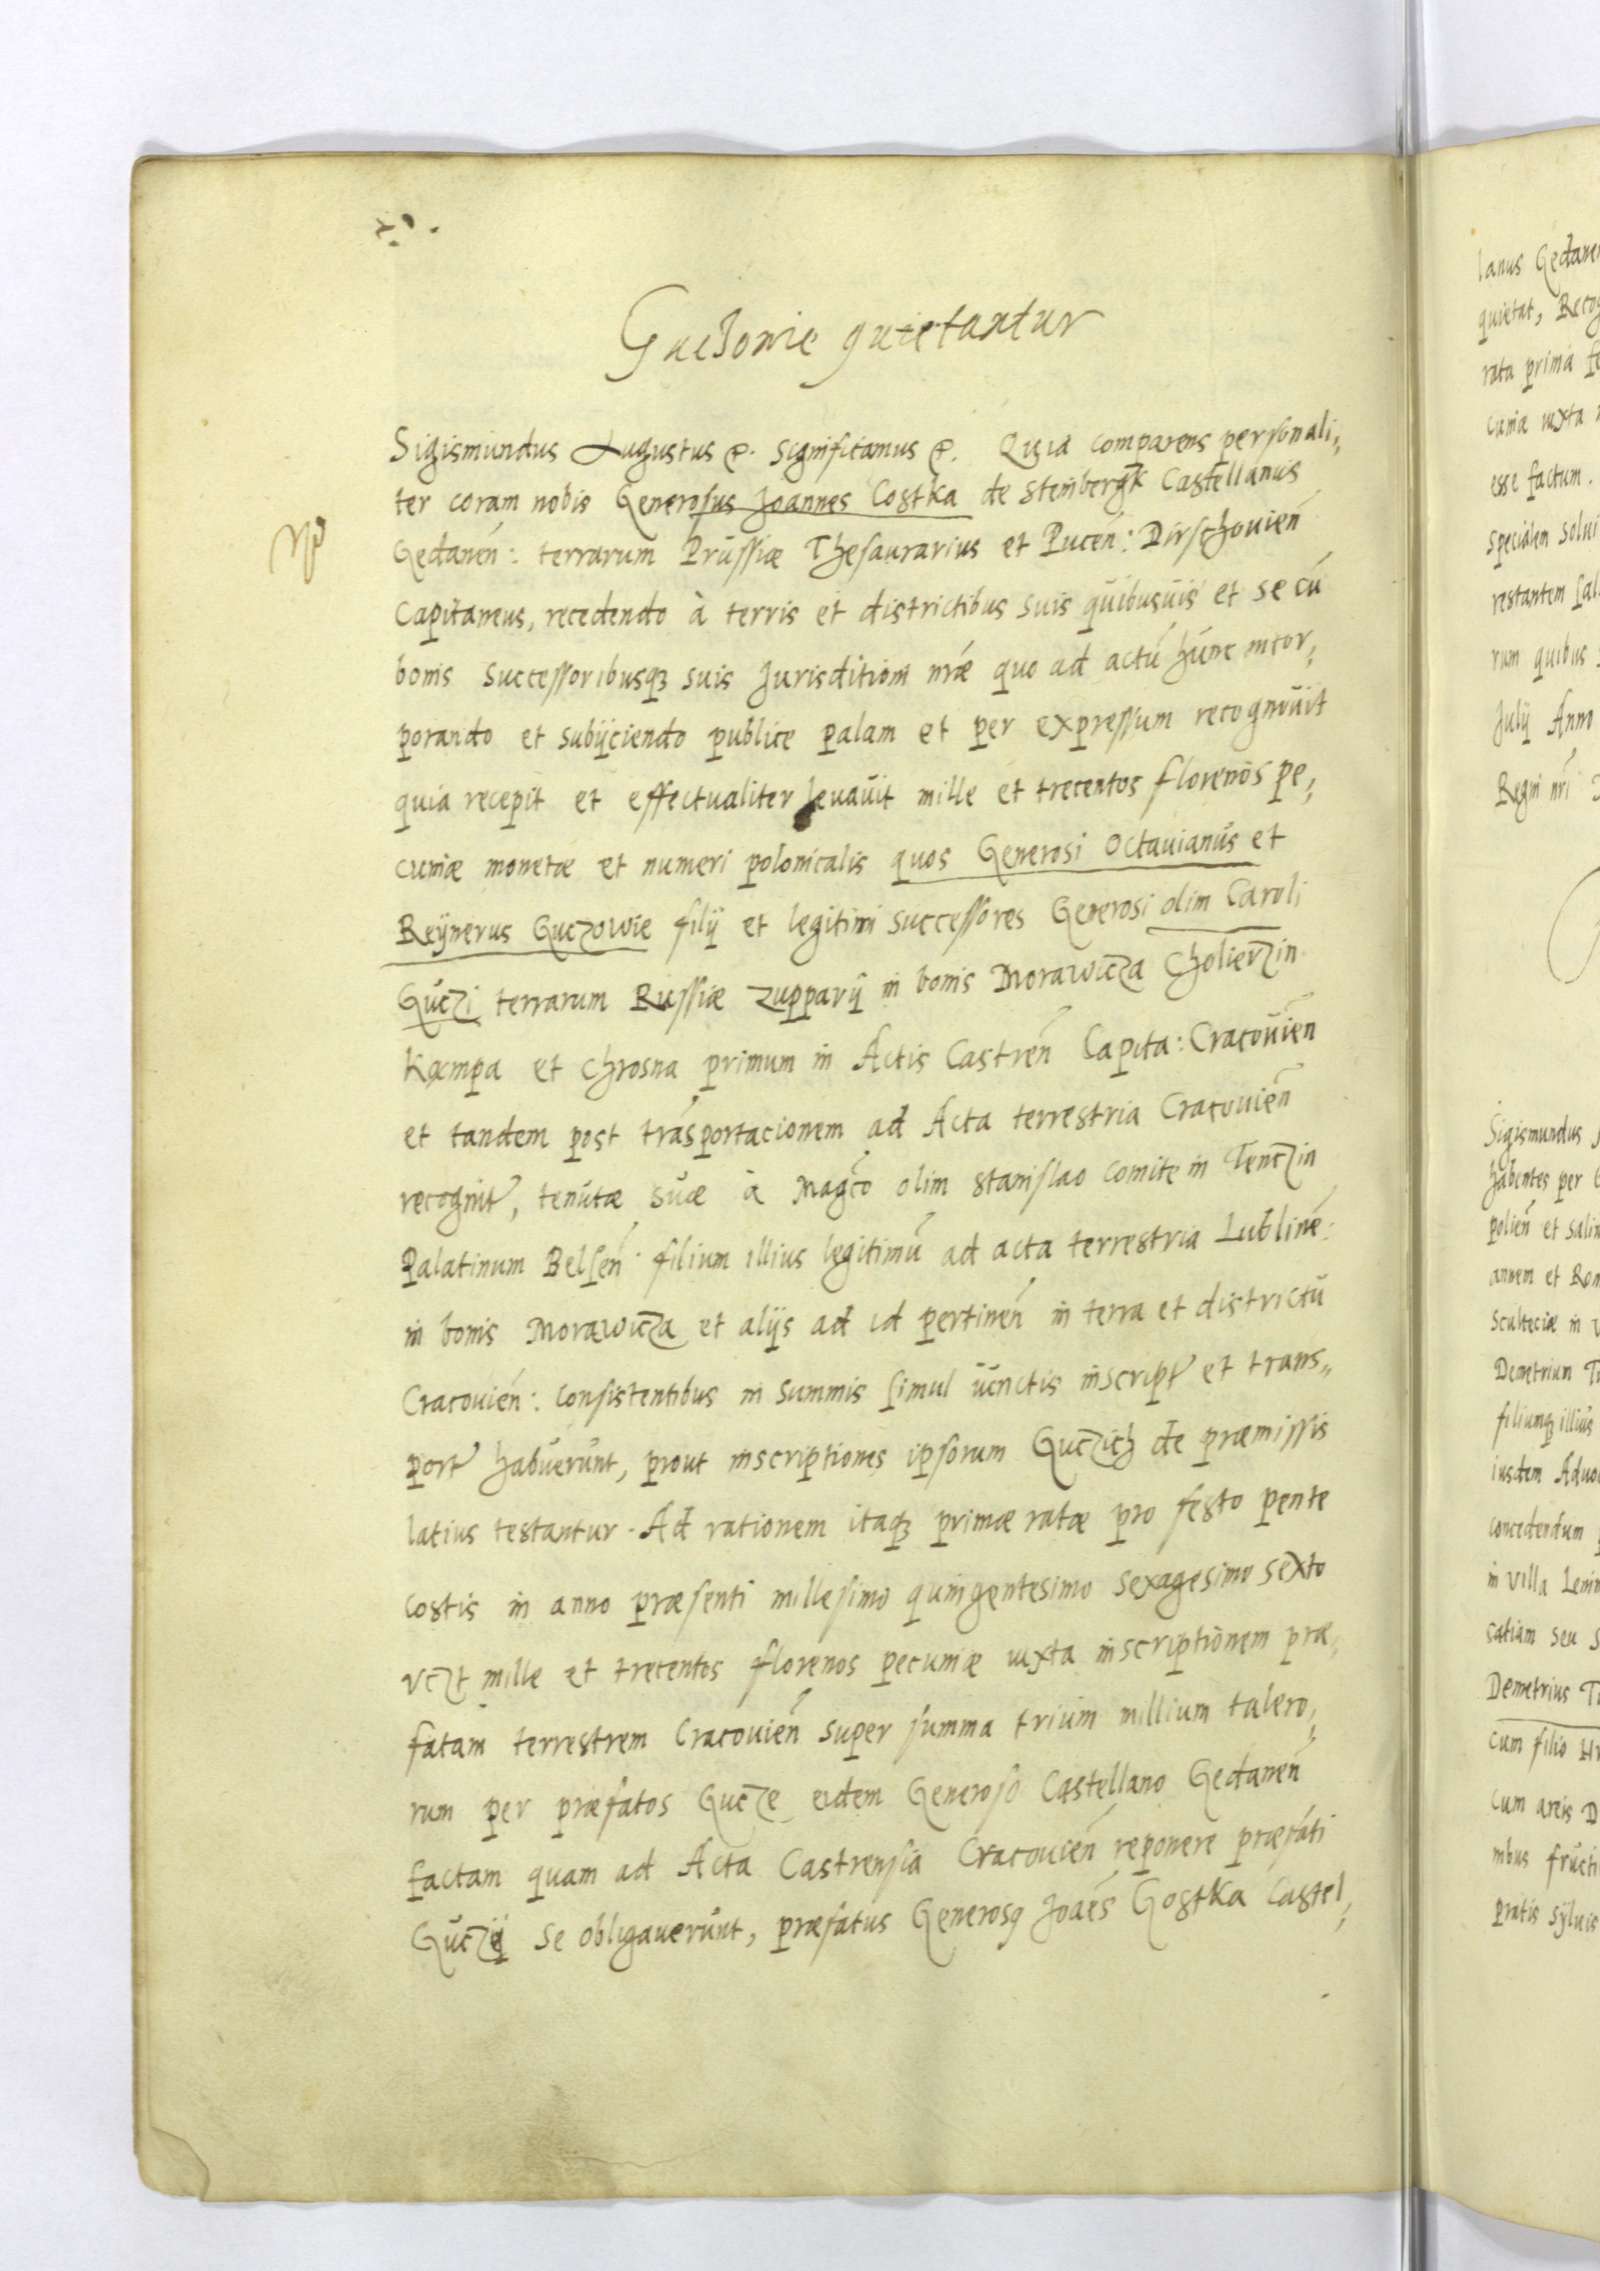 Guczowie quietantur
Sigismundus Augustus &. Significamus &. Quia comparens personali,
ter coram nobis Generosus Joannes Costka de Stembergk Castellanus
Gedanen̄: terrarum Prussiæ Thesaurarius et Pucen̄: Dirschouien̄
Capitaneus, recedendo à terris et districtibus suis quibusuis et se cū
bonis successoribusq3 suis Jurisditioni nræ quo ad actū hunc incor,
porando et subijciendo publice palam et per expressum recognouit
quia recepit et effectualiter leuauit mille et trecentos florenos pe,
cuniæ monetæ et numeri polonicalis quos Generosi Octauianus et
Reÿnerus Guczowie filij et legitimi successores Generosi olim Caroli
Guczi terrarum Russiæ zupparij in bonis Morawicza Cholierzin
Kæmpa et Chrosna primum in Actis Castren̄ Capita: Cracouien̄
et tandem post trāsportacionem ad Acta terrestria Cracouien̄
recognit̄, tenutæ suæ à Magc̄o olim Stanislao Comite in Tenczin
Palatinum Belsen̄ filium illius legitimū ad acta terrestria Lublinē:
in bonis Morawicza et alijs ad id pertinen̄ in terra et districtū
Cracouien̄: consistentibus in summis simul iunctis inscript̄ et trans,,
port̄ habuerunt, prout inscriptiones ipsorum Guczich de præmissis
latius testantur. Ad rationem itaq3 primæ ratæ pro festo pente
costis in anno præsenti millesimo quingentesimo sexagesimo sexto
vczt mille et trecentos florenos pecuniæ iuxta inscriptionem præ,
fatam terrestrem Cracouien̄ super summa trium millium talero,
rum per præfatos Gucze eidem Generoso Castellano Gedanen̄
factam quam ad Acta Castrensia Cracouien̄ reponere præfati
Guczij se obligauerunt, præfatus Generosq Joaēs Gostka Castel,
lanus Gedanen
quietat, Recog
rata prima fe
cuniæ iuxta
esse factum.
specialem solui
restantem sal
rum quibus
Julij Anno
Regni nri
Sigismundus
habentes per
polien̄ et salin
annem et Rom
Sculteciæ in
Demetrium
filiumq3 illius
iusdem Aduo
concedendum
in villa Lenin
catiam seu
Demetrius
cum filio
cum areis
nibus fructi
pratis syluis